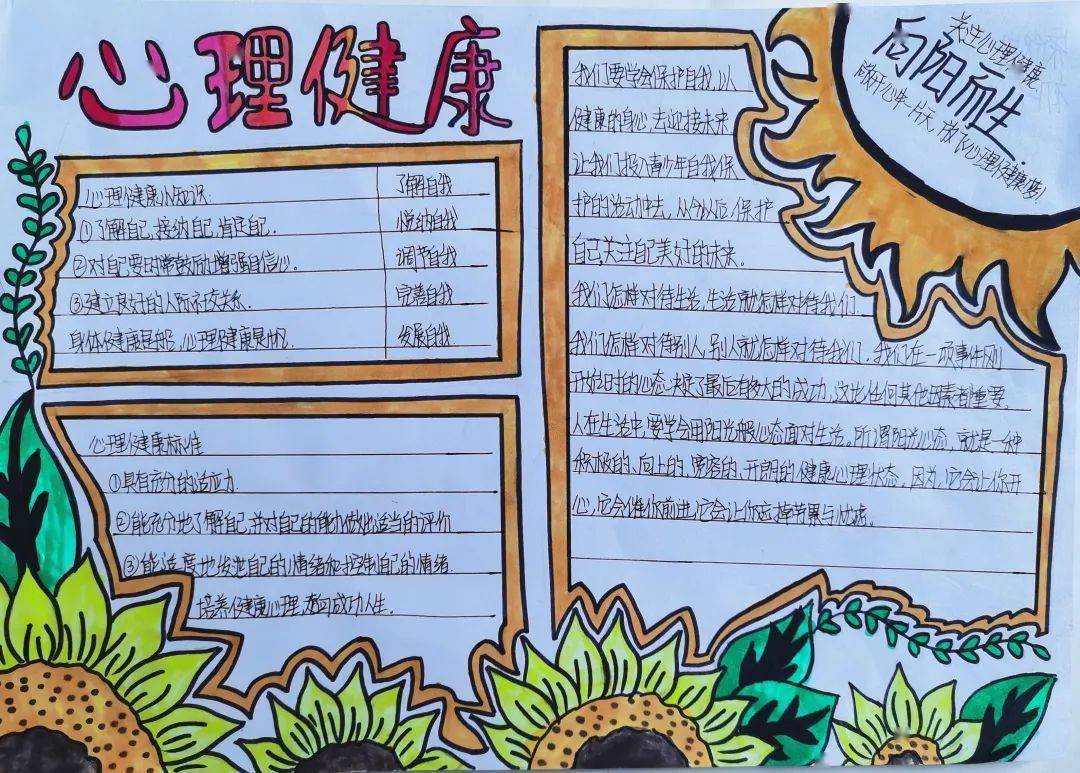 心理健康
心理健康小知识 了解自我
①了解自己,接纳自己,肯定自己. 悦纳自我
②对自己要时常鼓励,增强自信心。 调节自我
③建立良好的人际交往关系. 完善自我
身体健康是船,心理健康是帆. 发展自我
心理健康标准
①具有充分的适应力
②能充分地了解自己,并对自己的能力做出适当的评价
③能适度地发泄自己的情绪和控制自己的情绪.
培养健康心理,成功人生.
我们要学会保护自我,以
健康的身心去迎接未来
让我们投入青少年自我保
护的活动中去,从今以后,保护
自己,关注自己美好的未来。
我们怎样对待生活,生活就怎样对待我们.
我们怎样对待别人,别人就怎样对待我们,我们在一项事件刚
开始时的心态决定了最后有多大的成功,这比任何其他因素都重要,
人在生活中,要学会用阳光般心态面对生活。所谓阳光心态,就是一种
积极的、向上的、宽容的、开朗的健康心理状态。因为,它会让你开
心,它会催你前进,它会让你忘掉劳累与忧虑。
关注心理健康
向阳而生.
放开心中一片天,放飞心理健康梦!